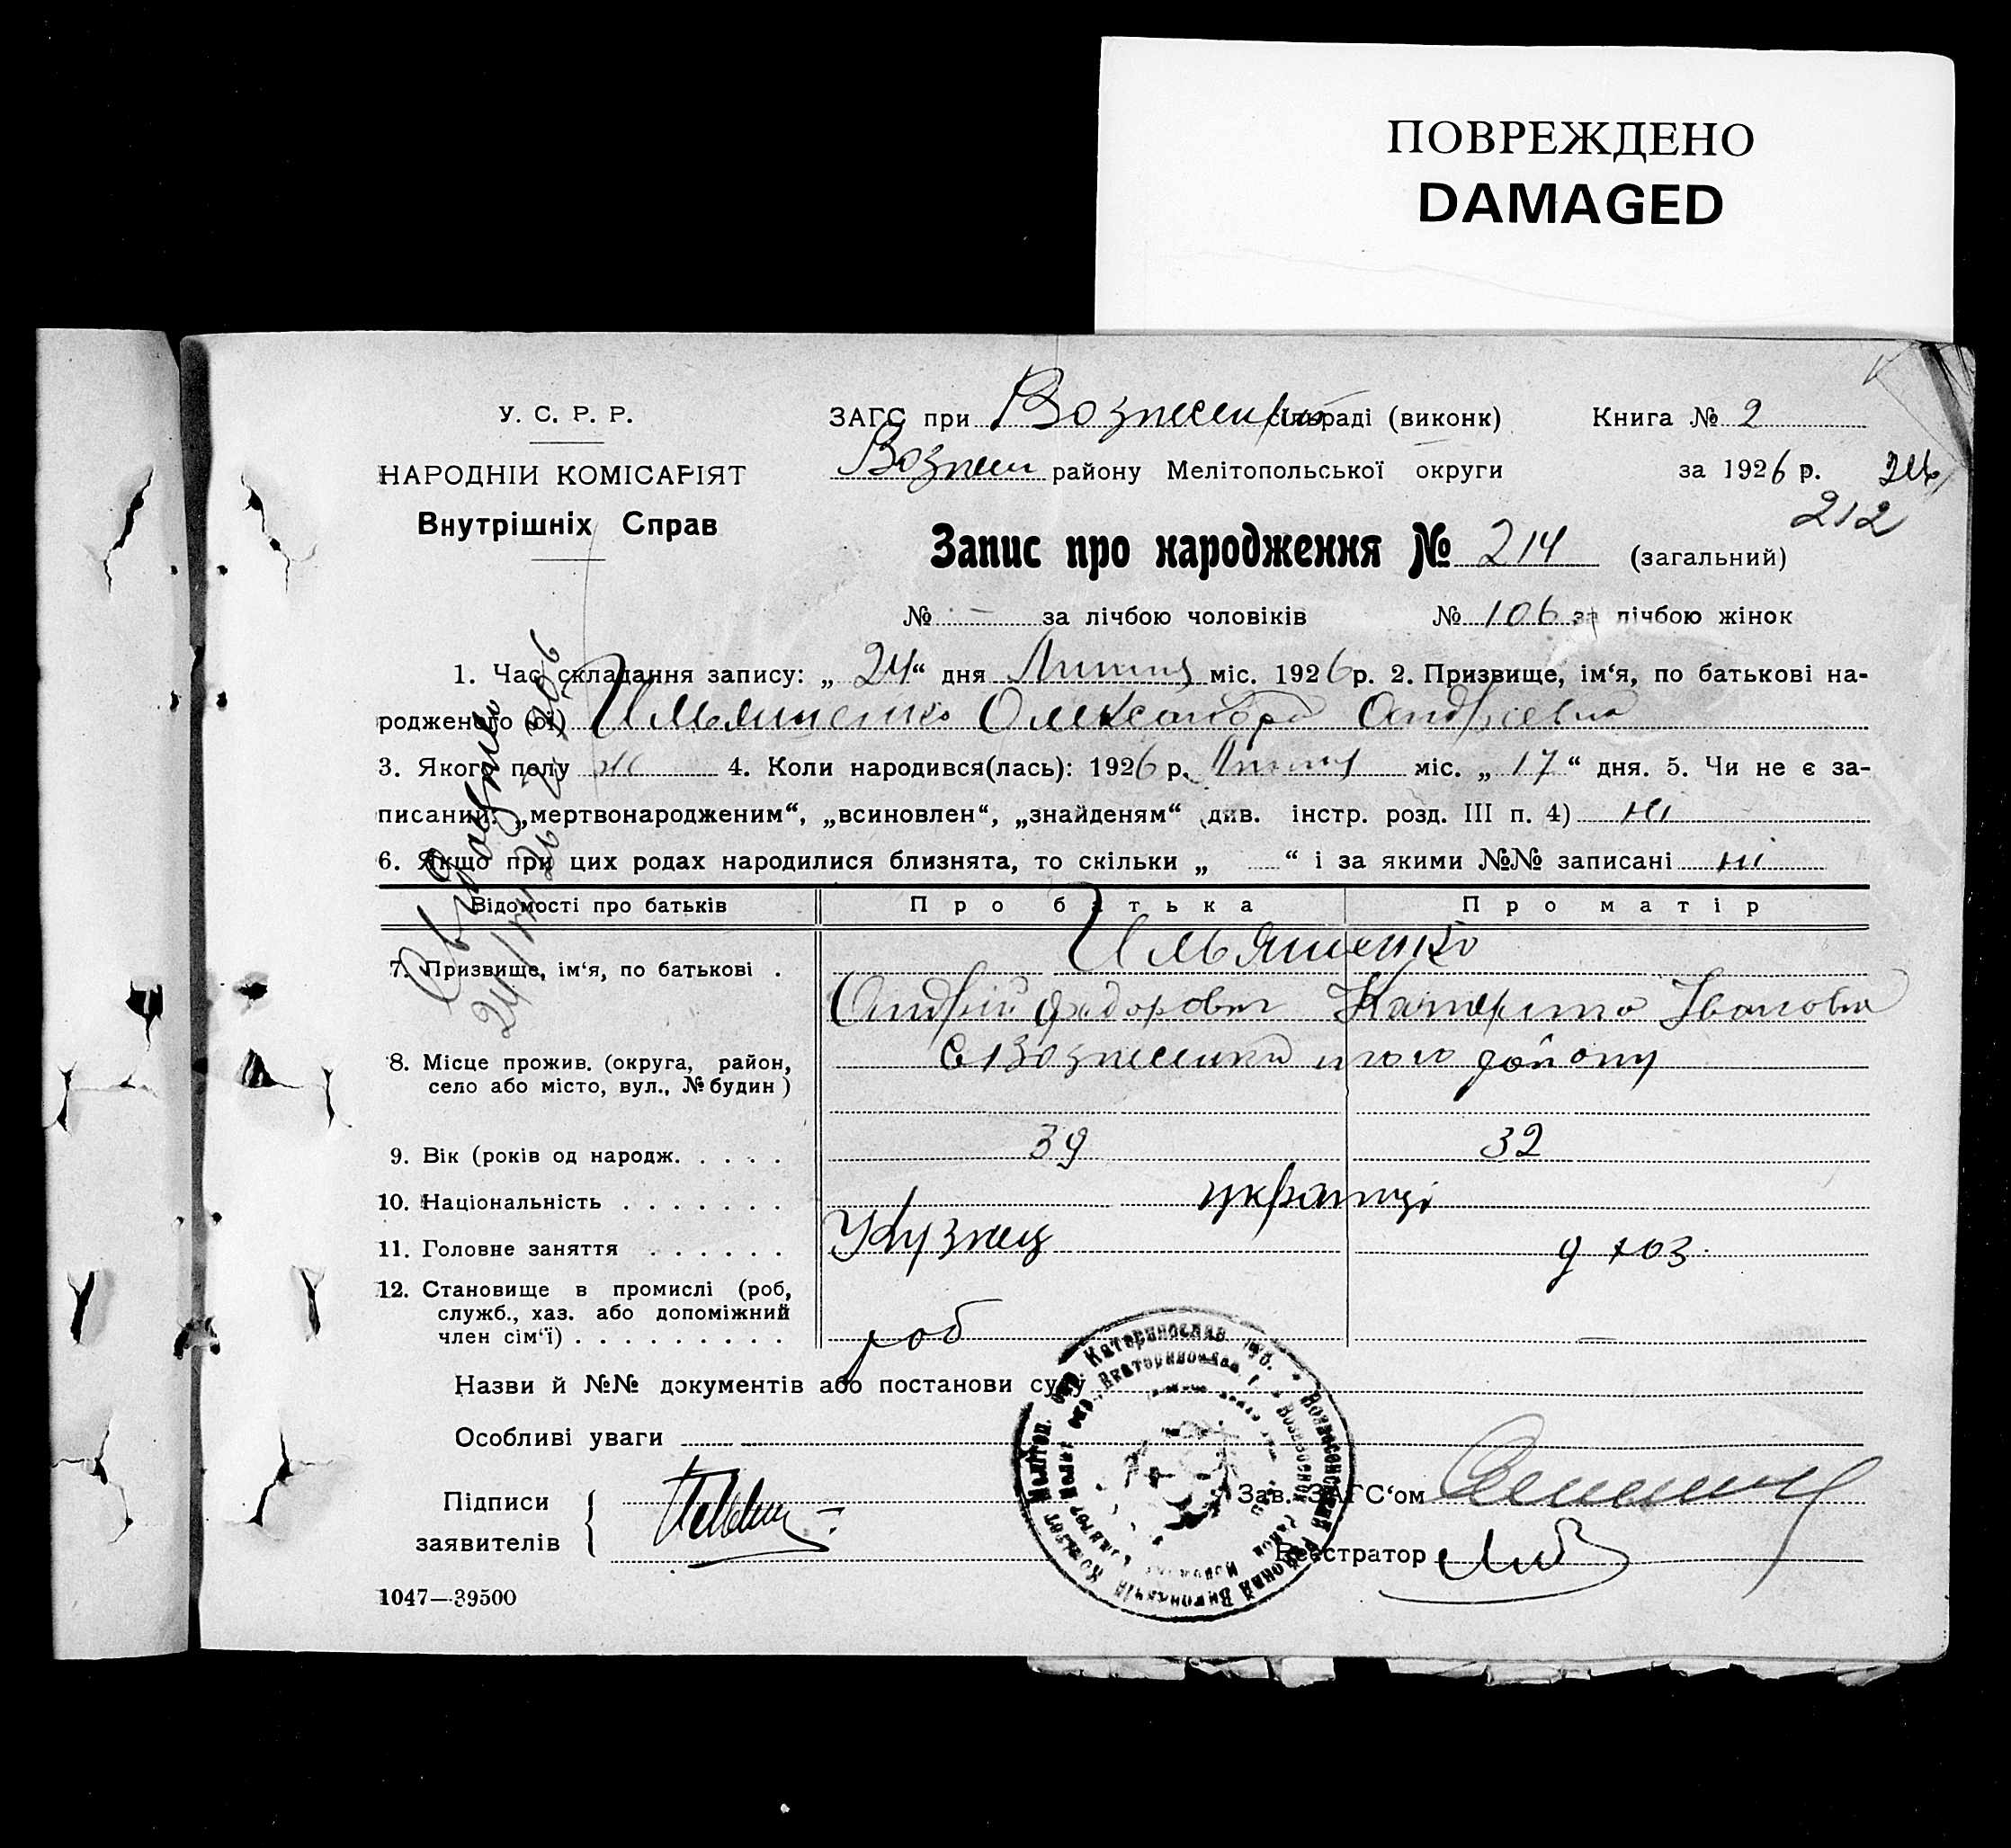 ПОВРЕЖДЕНО
DAMAGED
У. С. Р. Р.
НАРОДНІЙ КОМІСАРІЯТ
Внутрішніх Справ
ЗАГС при Вознесенськ сільраді (виконк)
Книга № 2
Вознесен району Мелітопольської округи
за 1926 р.
212
Запис про народження № 214 (загальний)
№ — за лічбою чоловіків № 106 за лічбою жінок
1. Час складання запису: „ 24 “ дня Липня міс. 1926 р. 2. Призвище, ім‘я, по батькові на-
родженого (ої) Ильяшенко Олександра Андріевна
3. Якого полу ж 4. Коли народився(лась): 1926 р. Липня міс. „ 17 “ дня. 5. Чи не є за-
писаний: „мертвонародженим“, „всиновлен“, „знайденям“ (див. інстр. розд. III п. 4) ні
6. Якщо при цих родах народилися близнята, то скільки „ “ і за якими №№ записані ні
Відомості про батьків Про батька Про матір
7. Призвище, ім‘я, по батькові . Ильяшенко
Андрій Федорович Катерина Івановна
8. Місце прожив. (округа, район, с Вознесенка цього району
село або місто, вул., № будин )
9. Вік (років од народж. . . . . 39 32
10. Національність . . . . . . . українці
11. Головне заняття . . . . . . Кузнец д хоз.
12. Становище в промислі (роб,
служб., хаз. або допоміжний
член сім‘ї) . . . . . . . . . роб —
Назви й №№ документів або постанови суду
Особливі уваги
Підписи
заявителів
Зав. ЗАГС‘ом
Реєстратор
1047—39500